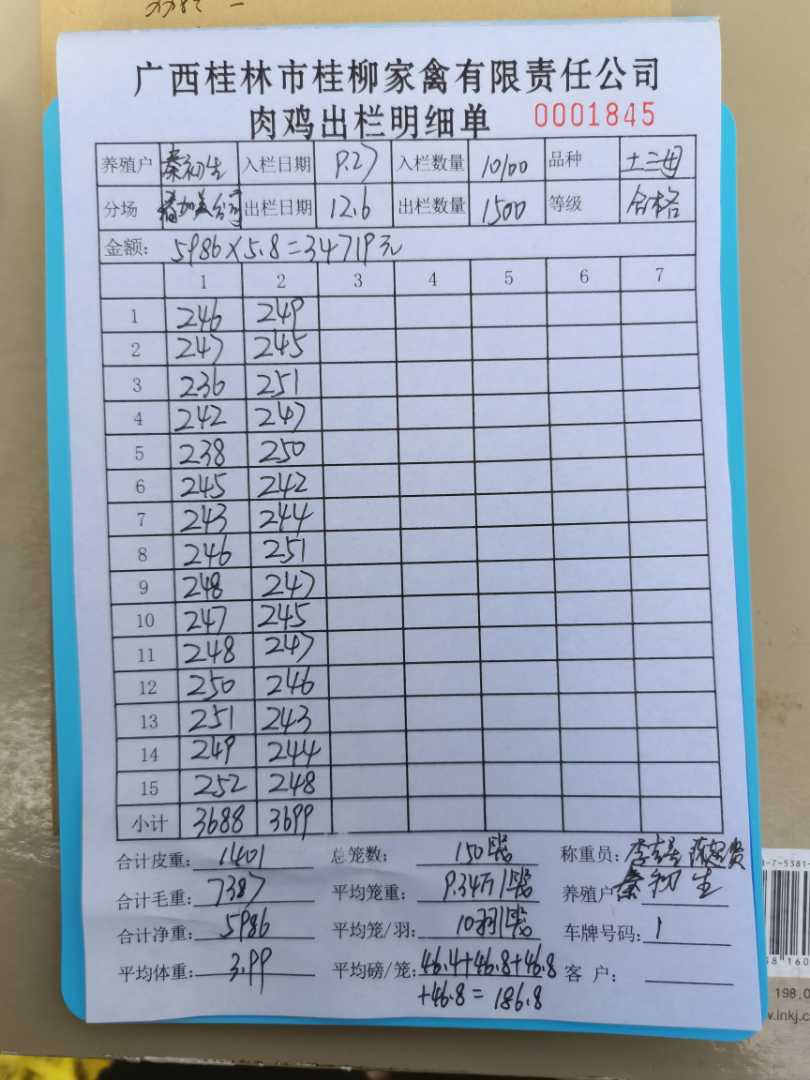 广西桂林市桂柳家禽有限责任公司
肉鸡出栏明细单 0001845
养殖户 秦初生 入栏日期 9.27 入栏数量 10100 品种 土二母
分场 出栏日期 12.6 出栏数量 1500 等级 合格
金额: 5986×5.8=34719元
1 2 3 4 5 6 7
1 246 249
2 247 245
3 236 251
4 242 247
5 238 250
6 245 242
7 243 244
8 246 251
9 248 247
10 247 245
11 248 247
12 250 246
13 251 243
14 249 244
15 252 248
小计 3688 3699
合计皮重: 1401 总笼数: 150 称重员:
合计毛重: 7387 平均笼重: 9.34 养殖户 秦初生
合计净重: 5986 平均笼/羽: 10羽 车牌号码: 1
平均体重: 3.99 平均磅/笼: 46.4+46.8+46.8 客户:
+46.8=186.8
198.0